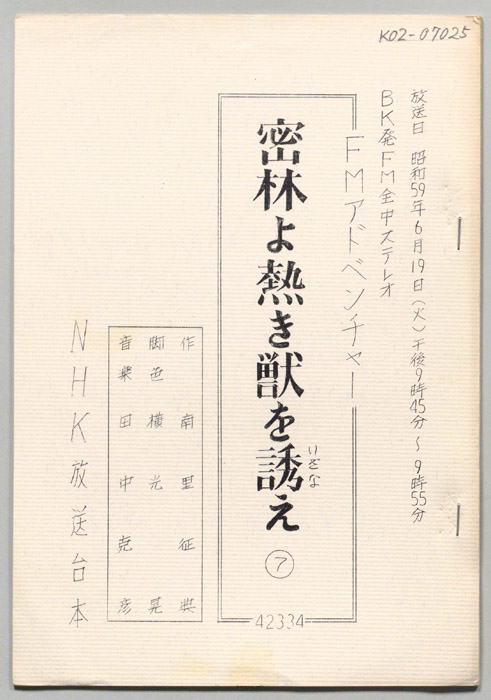 K02-07025
放送日 昭和59年6月19日(火)午後9時45分～9時55分
BK発FM全中ステレオ
FMアドベンチャー
密林よ熱き獣を誘え ⑦
いざな
42334
作 南里征典
脚色 横光晃
音楽 田中克彦
NHK放送台本